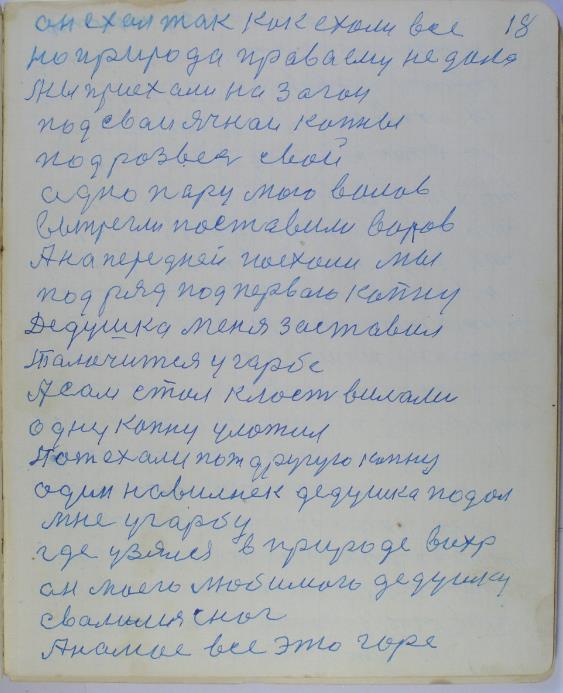 он ехал так как ехали все 18
но природа права ему не дана
Мы приехали на загон
под свал ячнаи копны
подрозвея свой
одно пару мого валов
Выпрегли поставили
А на передней поехали мы
под ряд под перваю копну
Дедушка меня заставил
Талочится у гарбе
А сам стал класт вилами
одну копну уложил
Пот ехали пот другую копну
один навилнек дедушка подал
мне у гарбу
где узялся в природе вихр
он моего любимого дедушку
свалил с ног
А на мое все это горе